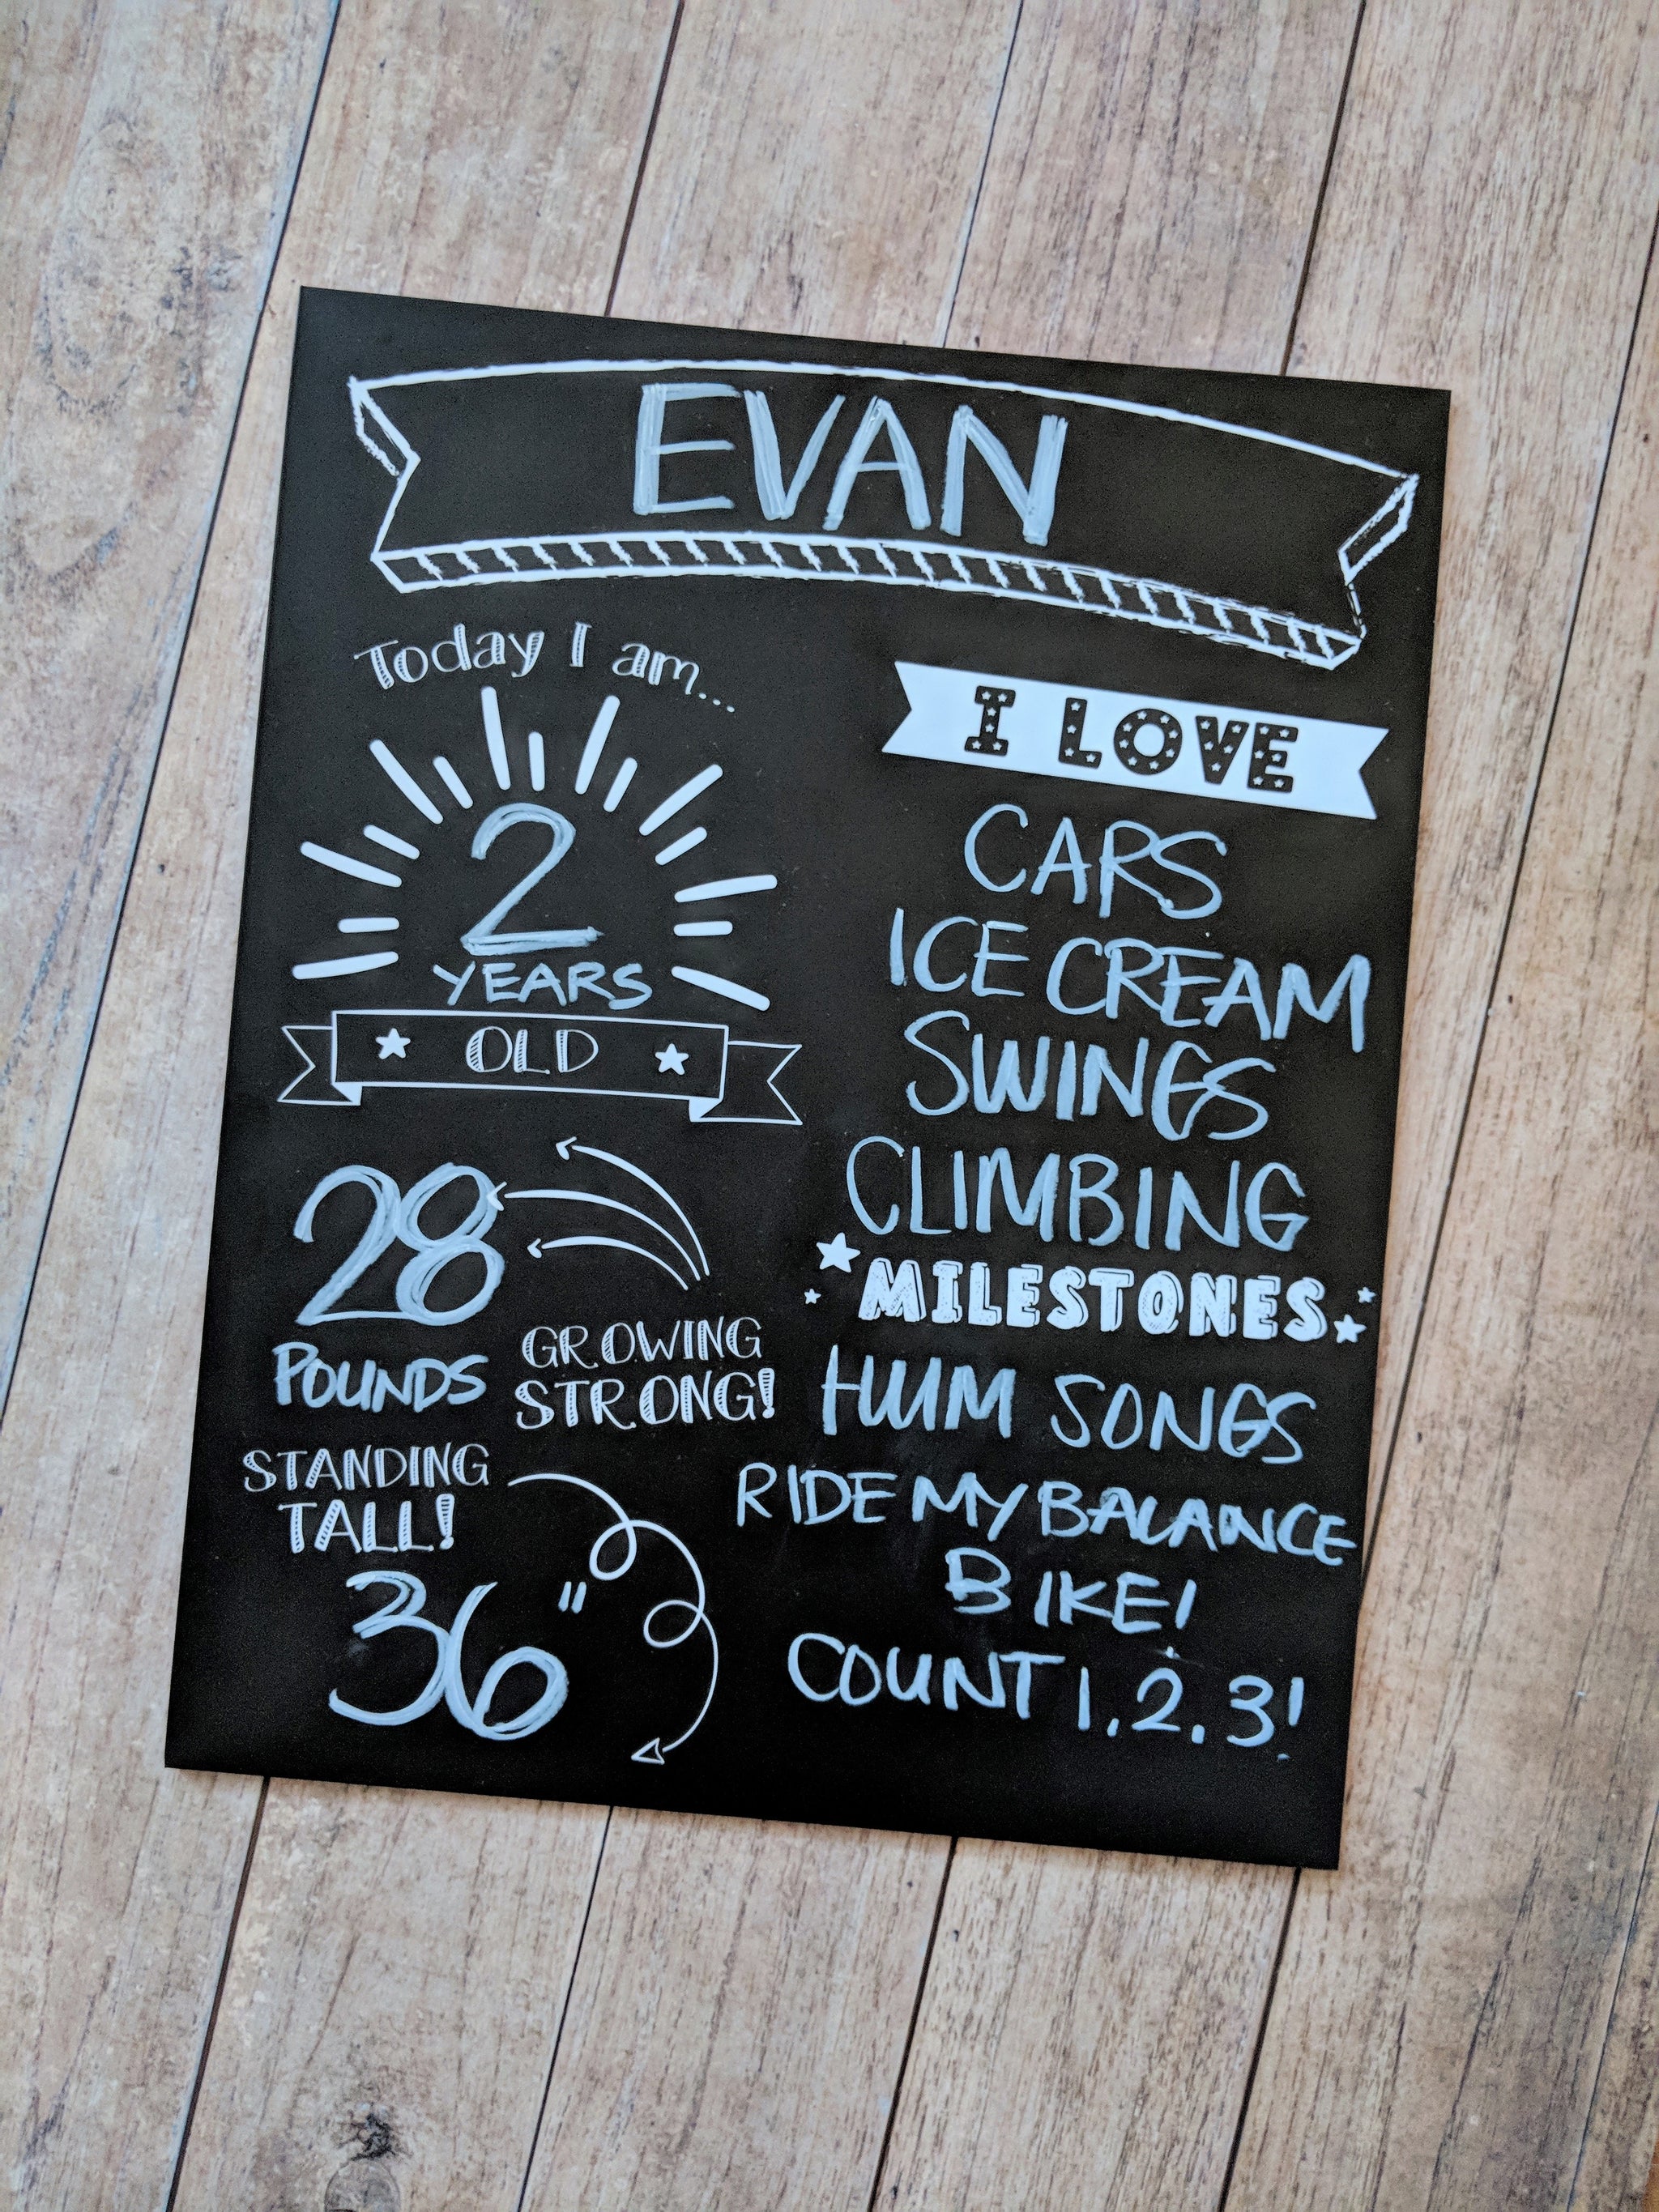 EVAN
Today I am...
2
YEARS
OLD
28
POUNDS
GROWING
STRONG!
STANDING
TALL!
36"
I LOVE
CARS
ICE CREAM
SWINGS
CLIMBING
MILESTONES
HUM SONGS
RIDE MY BALANCE
BIKE!
COUNT 1.2.3!